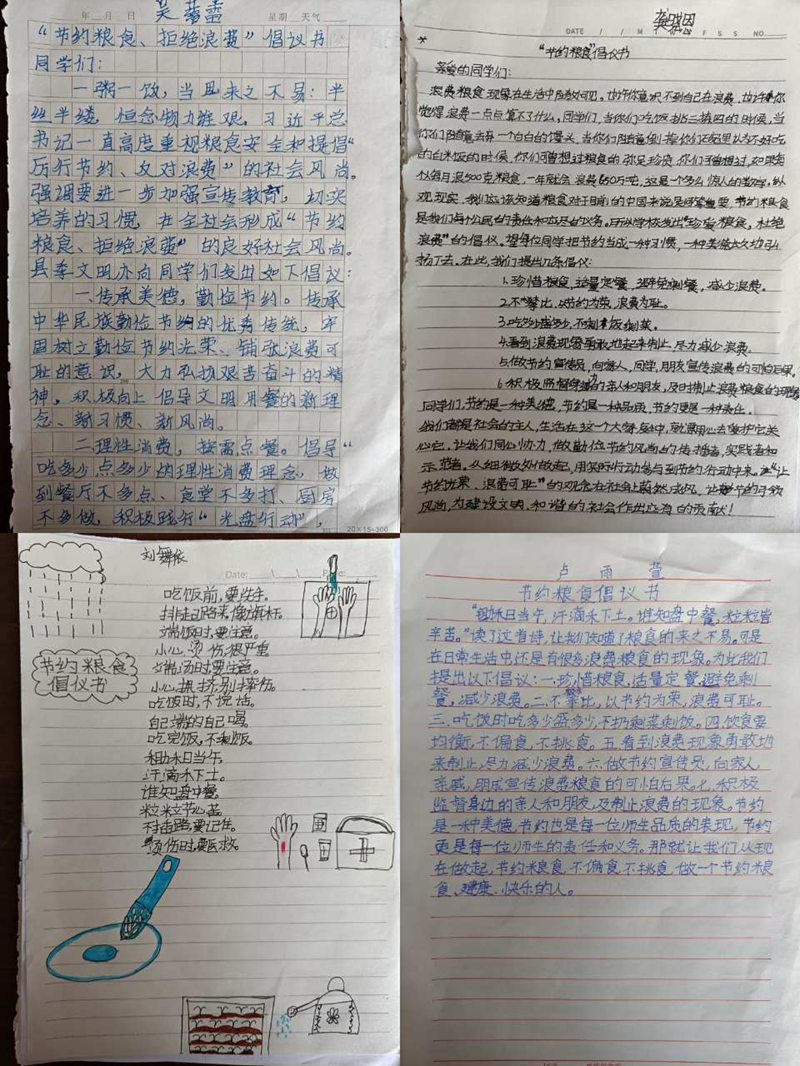 年 月 日
星期 天气
“节约粮食、拒绝浪费”倡议书
同学们：
一粥一饭，当思来之不易；半
丝半缕，恒念物力维艰，习近平总
书记一直高度重视粮食安全和提倡“
厉行节约、反对浪费”的社会风尚。
强调要进一步加强宣传教育，切实
培养的习惯，在全社会形成“节约
粮食、拒绝浪费”的良好社会风尚。
县委文明办向同学们发出如下倡议：
一.传承美德，勤俭节约。传承
中华民族勤俭节约的优秀传统，牢
固树立勤俭节约光荣、铺张浪费可
耻的意识，大力弘扬艰苦奋斗的精
神，积极向上倡导文明用餐的新理
念、新习惯、新风尚。
二.理性消费，按需点餐。倡导“
吃多少点多少”的理性消费理念，做
到餐厅不多点、食堂不多打、厨房
不多做，积极践行“光盘行动”，
20×15=300
DATE / / M T W T F S S NO.
“节约粮食”倡议书
亲爱的同学们：
浪费粮食现象在生活中随处可见。也许你意识不到自己在浪费，也许你
觉得浪费一点点算不了什么，同学们，当你们吃饭挑三拣四的时候，当
你们随意丢弃一个白白的馒头，当你们随意倒掉你们还吃里认为不好吃
的白米饭的时候，你们可曾想过粮食的弥足珍贵，你们可曾想过，如果每
人每月浪500克粮食，一年就会浪费 万吨，这是个多么惊人的数字。纵
观现实，我们应该知道粮食对于目前的中国来说是何等重要，节约粮食
是我们每个公民的责任和应尽的义务。所以学校发出“珍爱粮食，杜绝
浪费”的倡仪。望每位同学把节约当成一种习惯，一种美德永久地引
扬下去。在此，我们提出几条倡仪：
1.珍惜粮食，适量定餐，避免剩餐，减少浪费。
2.不攀比，以节约为荣，浪费为耻。
3.吃多少盛多少，不剩饭剩菜。
4.看到浪费现象勇敢地起来制止，尽力减少浪费。
5.做节约宣传员，向家人，同学，朋友宣传浪费的可怕后果。
6.积极监督身边的亲人和朋友，及时制止浪费粮食的现象
同学们，节约是一种美德，节约是一种品质，节约更是一种责任。
我们都是社会的主人，生活在这一个大家庭中，就要用心去爱护它关
心它。让我们同心协力，做勤俭节约风尚的传播者，实践者和
示范者，从细微处做起，用实际行动参与到节约行动中来，让“让
节约光荣、浪费可耻”的观念在社会上蔚然成风，让勤俭节约
风尚，为建设文明、和谐的社会作出应有的贡献！
刘舞依
Date: \ \
节约粮食
倡仪书
吃饭前，要洗手。
排走路来像旗杆。
端饭时，要注意。
小心烫伤很严重。
端汤时，要注意。
小心拥挤，别摔伤。
吃饭时，不说话。
自己端的自己喝。
吃完饭，不剩饭。
锄禾日当午，
汗滴禾下土。
谁知盘中餐，
粒粒皆辛苦。
烫伤时要医救。
卢雨萱
节约粮食倡议书
“锄禾日当午，汗滴禾下土。谁知盘中餐，粒粒皆
辛苦。”读了这首诗，让我们知道了粮食的来之不易。可是
在日常生活中还是有很多浪费粮食的现象。为此我们
提出以下倡议：一.珍惜粮食，适量定餐，避免剩
餐，减少浪费。二.不攀比，以节约为荣，浪费可耻。
三.吃饭时吃多少盛多少，不扔剩菜剩饭。四.饮食要
均衡，不偏食，不挑食。五.看到浪费现象勇敢地
来制止，尽力减少浪费。六.做节约宣传员，向家人，
亲戚，朋友宣传浪费粮食的可怕后果。七.积极
监督身边的亲人和朋友，及制止浪费的现象。节约
是一种美德，节约也是每一位师生品质的表现，节约
更是每一位师生的责任和义务。那就让我们从现
在做起，节约粮食，不偏食，不挑食，做一个节约粮
食、健康、快乐的人。